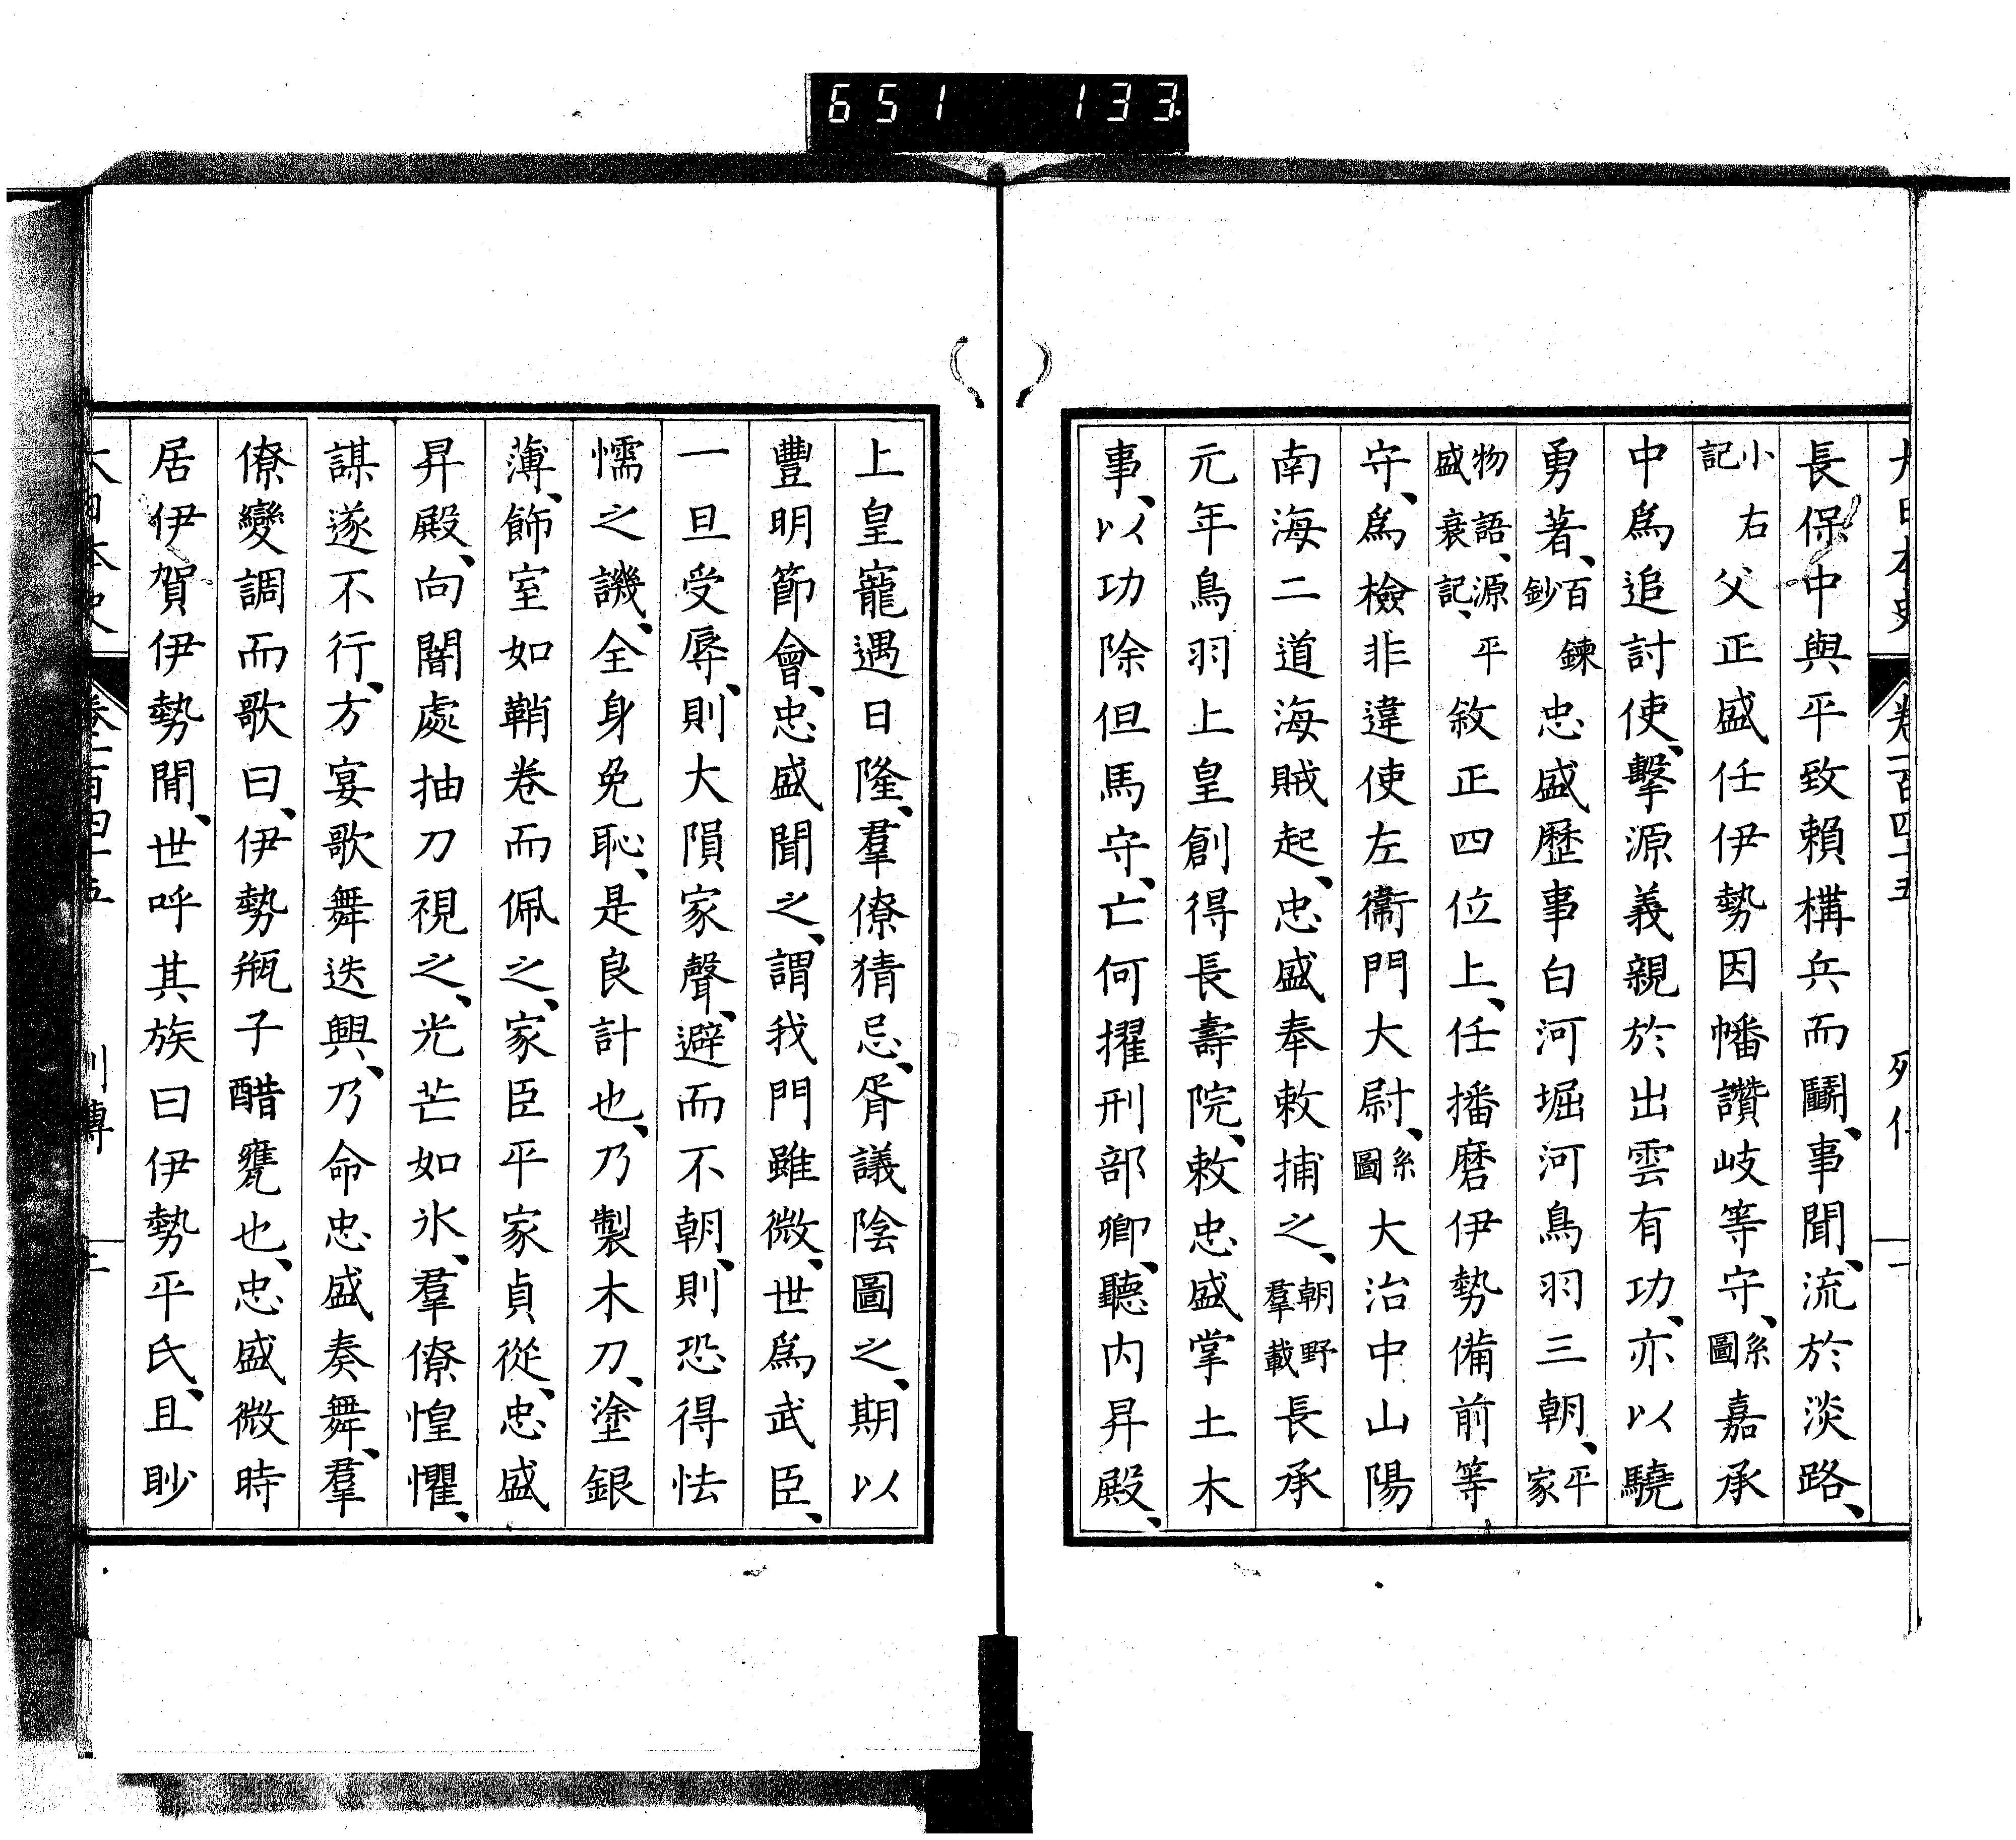 651 133
大日本史 卷一百四十五 列傳
長保中與平致賴構兵而鬭、事聞、流於淡路、
小右記父正盛任伊勢因幡讚岐等守、系圖嘉承
中爲追討使、擊源義親於出雲有功、亦以驍
勇著、百鍊鈔忠盛歷事白河堀河鳥羽三朝、平家
物語、源平盛衰記、敘正四位上、任播磨伊勢備前等
守、爲檢非違使左衞門大尉、系圖大治中山陽
南海二道海賊起、忠盛奉敕捕之、朝野羣載長承
元年鳥羽上皇創得長壽院、敕忠盛掌土木
事、以功除但馬守、亡何擢刑部卿、聽内昇殿、
上皇寵遇日隆、羣僚猜忌、胥議陰圖之、期以
豐明節會、忠盛聞之、謂我門雖微、世爲武臣、
一旦受辱、則大隕家聲、避而不朝、則恐得怯
懦之譏、全身免恥、是良計也、乃製木刀、塗銀
薄、飾室如鞘卷而佩之、家臣平家貞從、忠盛
昇殿、向闇處抽刀視之、光芒如氷、羣僚惶懼、
謀遂不行、方宴歌舞迭興、乃命忠盛奏舞、羣
僚變調而歌曰、伊勢瓶子醋甕也、忠盛微時
居伊賀伊勢間、世呼其族曰伊勢平氏、且眇
大日本史 卷一百四十五 列傳 三